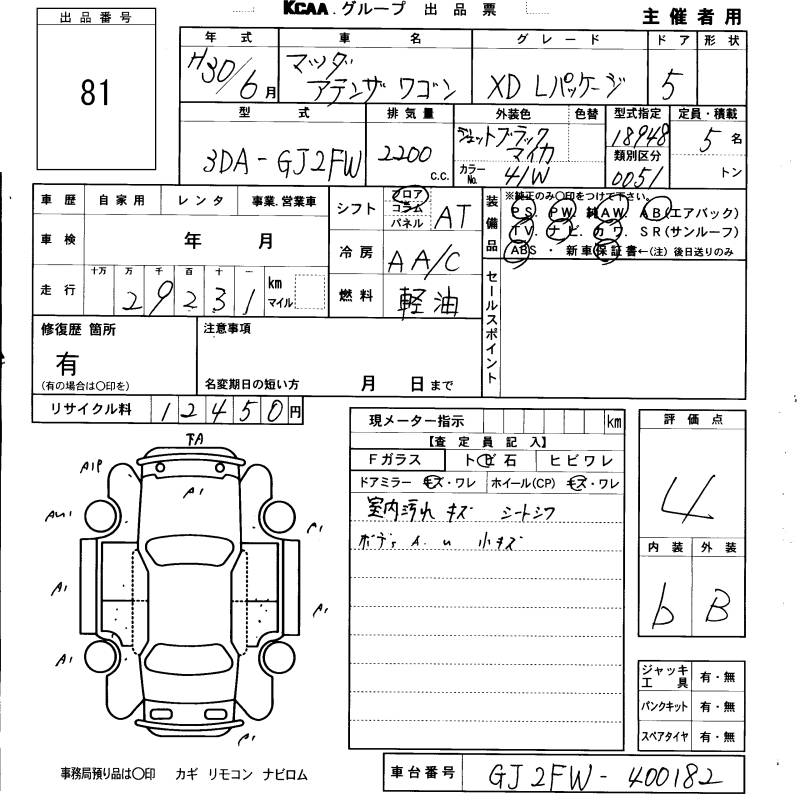 KCAA.グループ 出品票
主催者用
出品番号
81
年式 車名 グレード ドア 形状
H30/6月 マツダ アテンザ ワゴン XD Lパッケージ 5
型式 排気量 外装色 色替 型式指定 定員・積載
3DA-GJ2FW 2200 C.C. ジェットブラックマイカ 18948 5名
カラーNo. 41W 類別区分 0051 トン
車歴 自家用 レンタ 事業.営業車
シフト フロア コラム パネル AT
装備品 ※純正のみ〇印をつけて下さい。
PS. PW. 純AW. AB(エアバック)
TV. ナビ. カワ. SR(サンルーフ)
ABS ・ 新車保証書←(注) 後日送りのみ
車検 年 月
冷房 AA/C
走行 十万 万 千 百 十 一
29231 km マイル
燃料 軽油
セールスポイント
修復歴 箇所 注意事項
有
(有の場合は〇印を) 名変期日の短い方 月 日まで
リサイクル料 12450円
現メーター指示 km
【査定員記入】
Fガラス トビ石 ヒビワレ
ドアミラー キズ・ワレ ホイール(CP) キズ・ワレ
室内汚れ キズ シートシワ
小キズ
評価点
4
内装 外装
b B
A1P A1
A1
A1 A1
A1
A1
ジャッキ工具 有・無
パンクキット 有・無
スペアタイヤ 有・無
事務局預り品は〇印 カギ リモコン ナビロム
車台番号 GJ2FW-400182